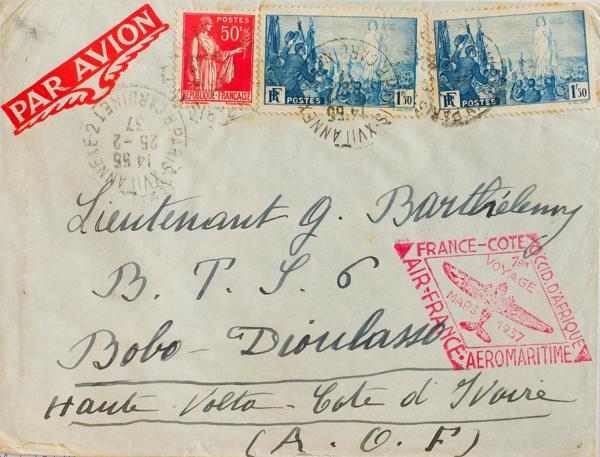 PAR AVION
POSTES
50c
REPUBLIQUE-FRANCAISE
RF
POSTES
1f50
RF
POSTES
1f50
PARIS XVII ANNEXE-2
R CARDINET
14 55
25-2
37
Lieutenant G. Barthélemy
B. T. S. 6
Bobo-Dioulasso
Haute Volta-Cote d'Ivoire
(A.O.F)
FRANCE-COTE OCCID.D'AFRIQUE
1er VOYAGE
MARS 1937
AIR-FRANCE·AEROMARITIME